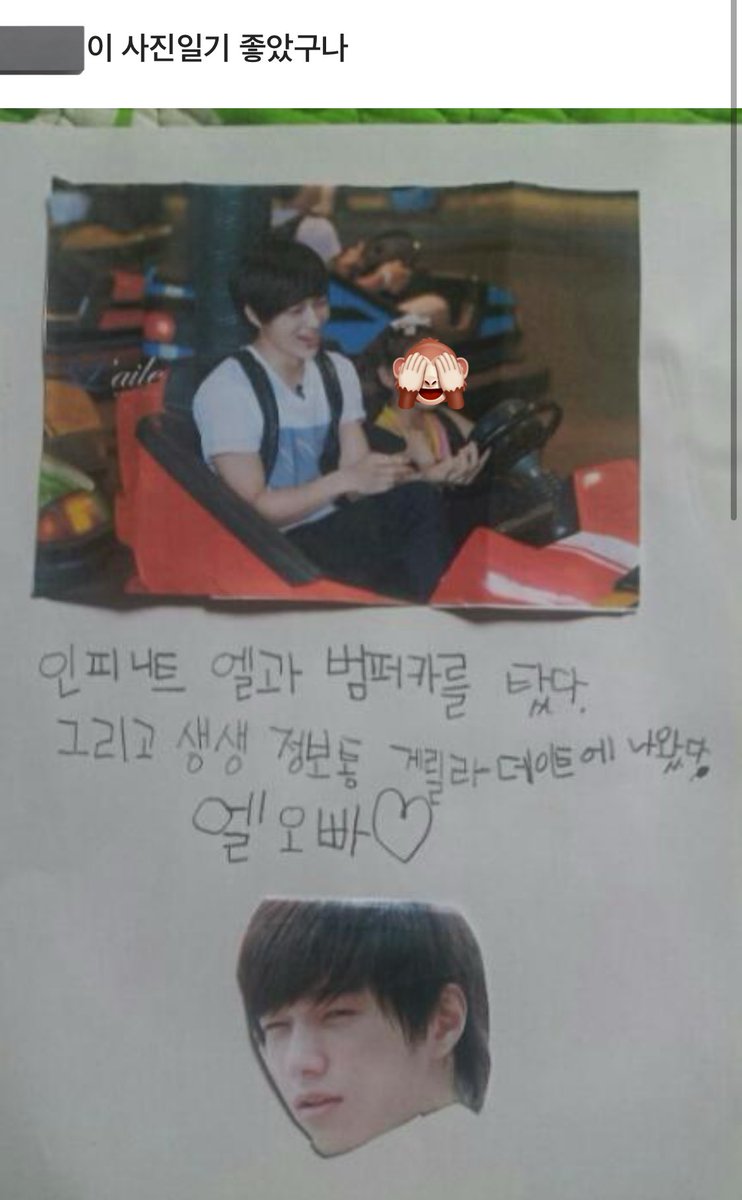 이 사진일기 좋았구나
L'aile
인피니트 엘과 범퍼카를 탔다.
그리고 생생 정보통 게릴라 데이트에 나왔다.
엘 오빠♡